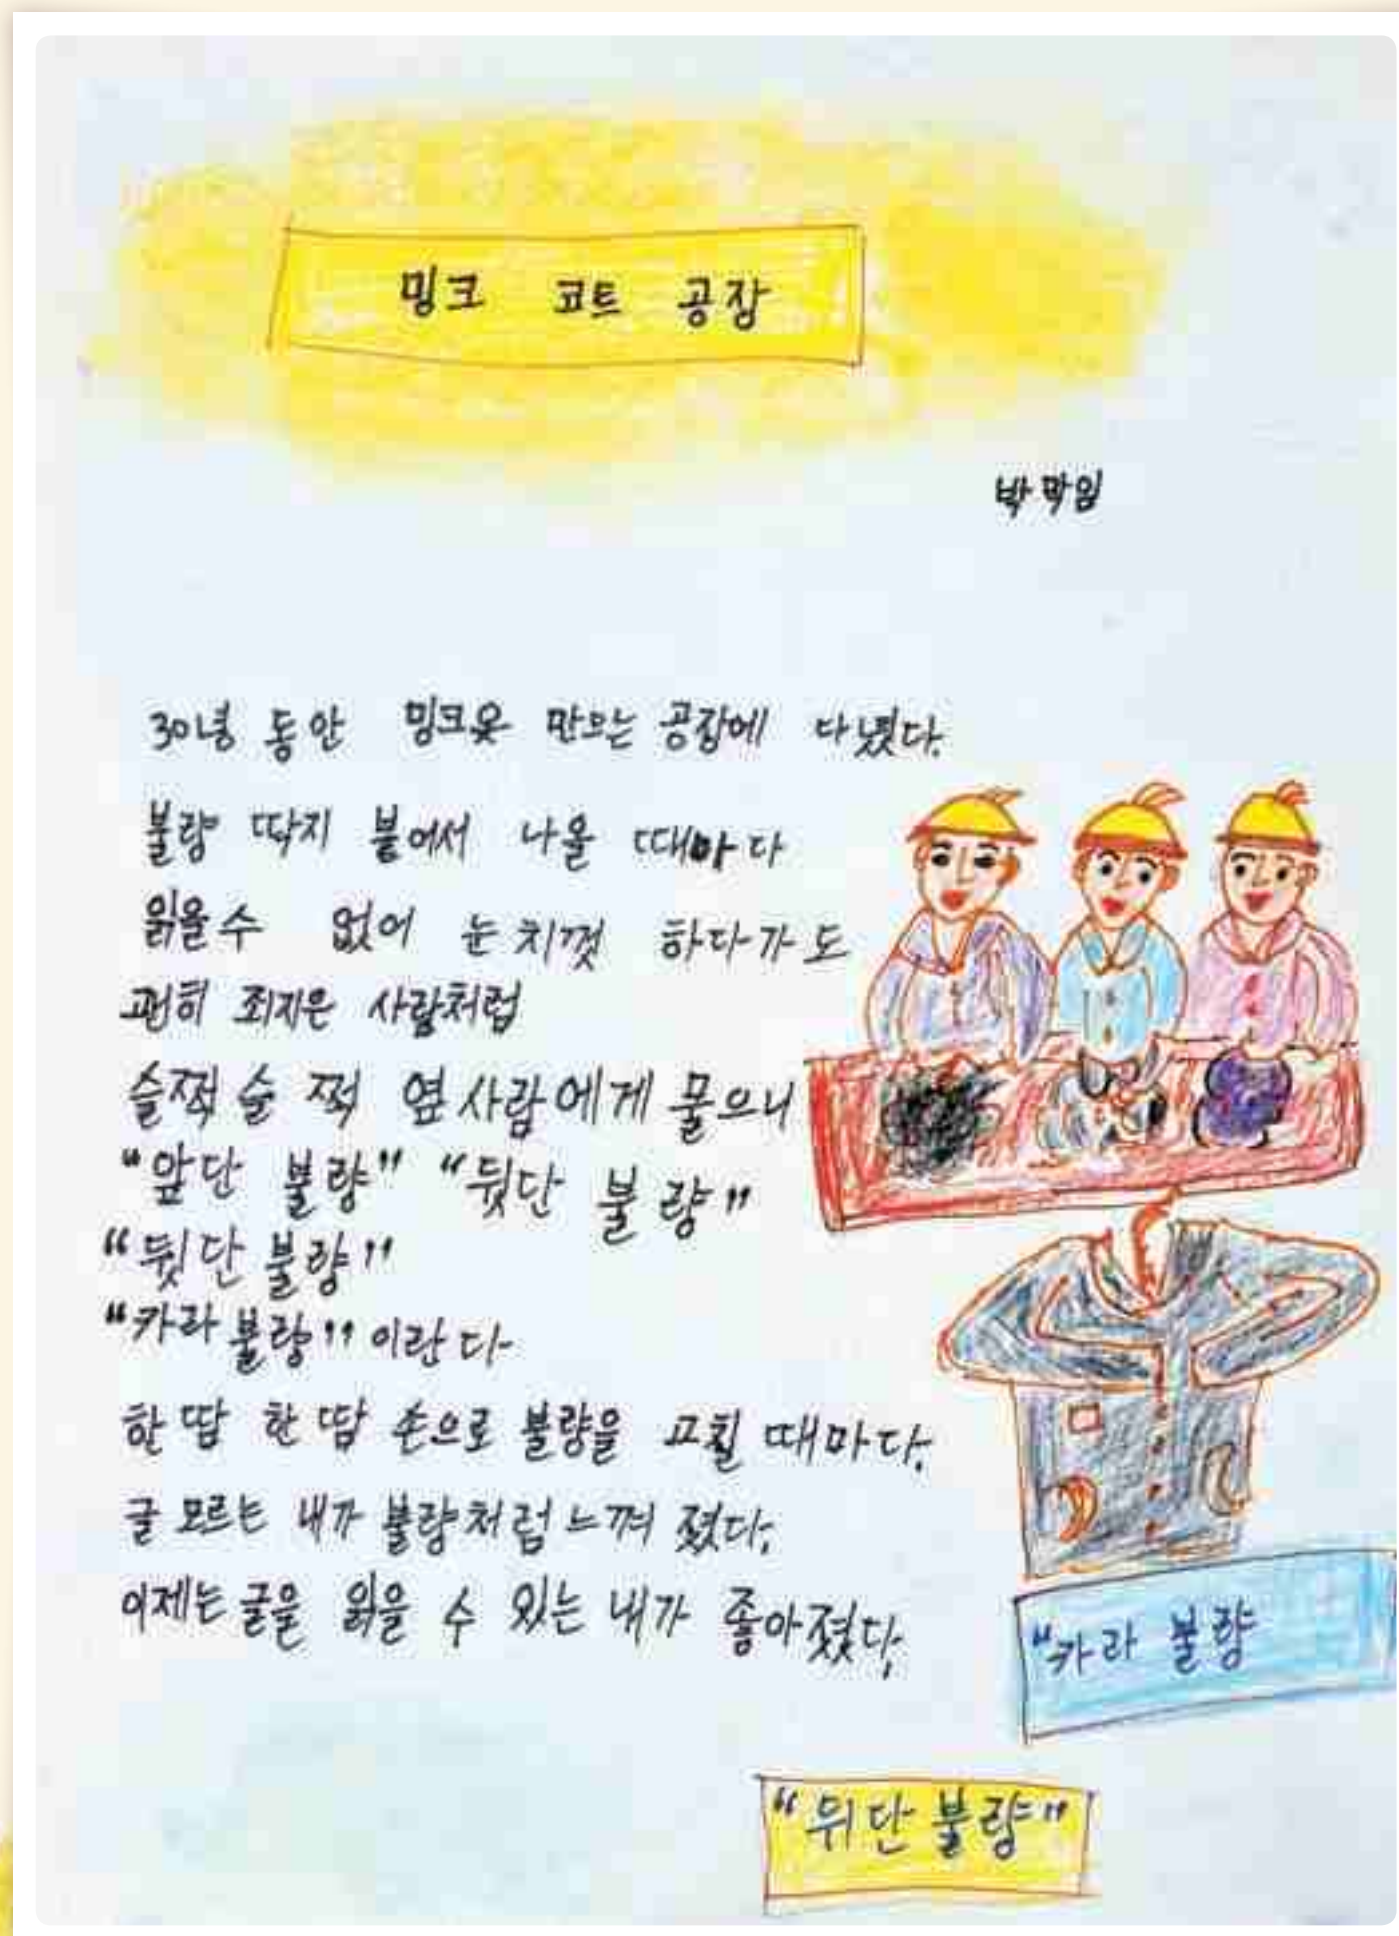 밍크 코트 공장
박막임
30년 동안 밍크옷 만드는 공장에 다녔다.
불량 딱지 붙어서 나올 때마다
읽을수 없어 눈치껏 하다가도
괜히 죄지은 사람처럼
슬쩍슬쩍 옆사람에게 물으니
"앞단 불량" "뒷단 불량"
"뒷단 불량"
"카라 불량" 이란다
한땀 한땀 손으로 불량을 고칠 때마다.
글 모르는 내가 불량처럼 느껴 졌다.
이제는 글을 읽을 수 있는 내가 좋아졌다.
"카라 불량
"뒤단 불량"